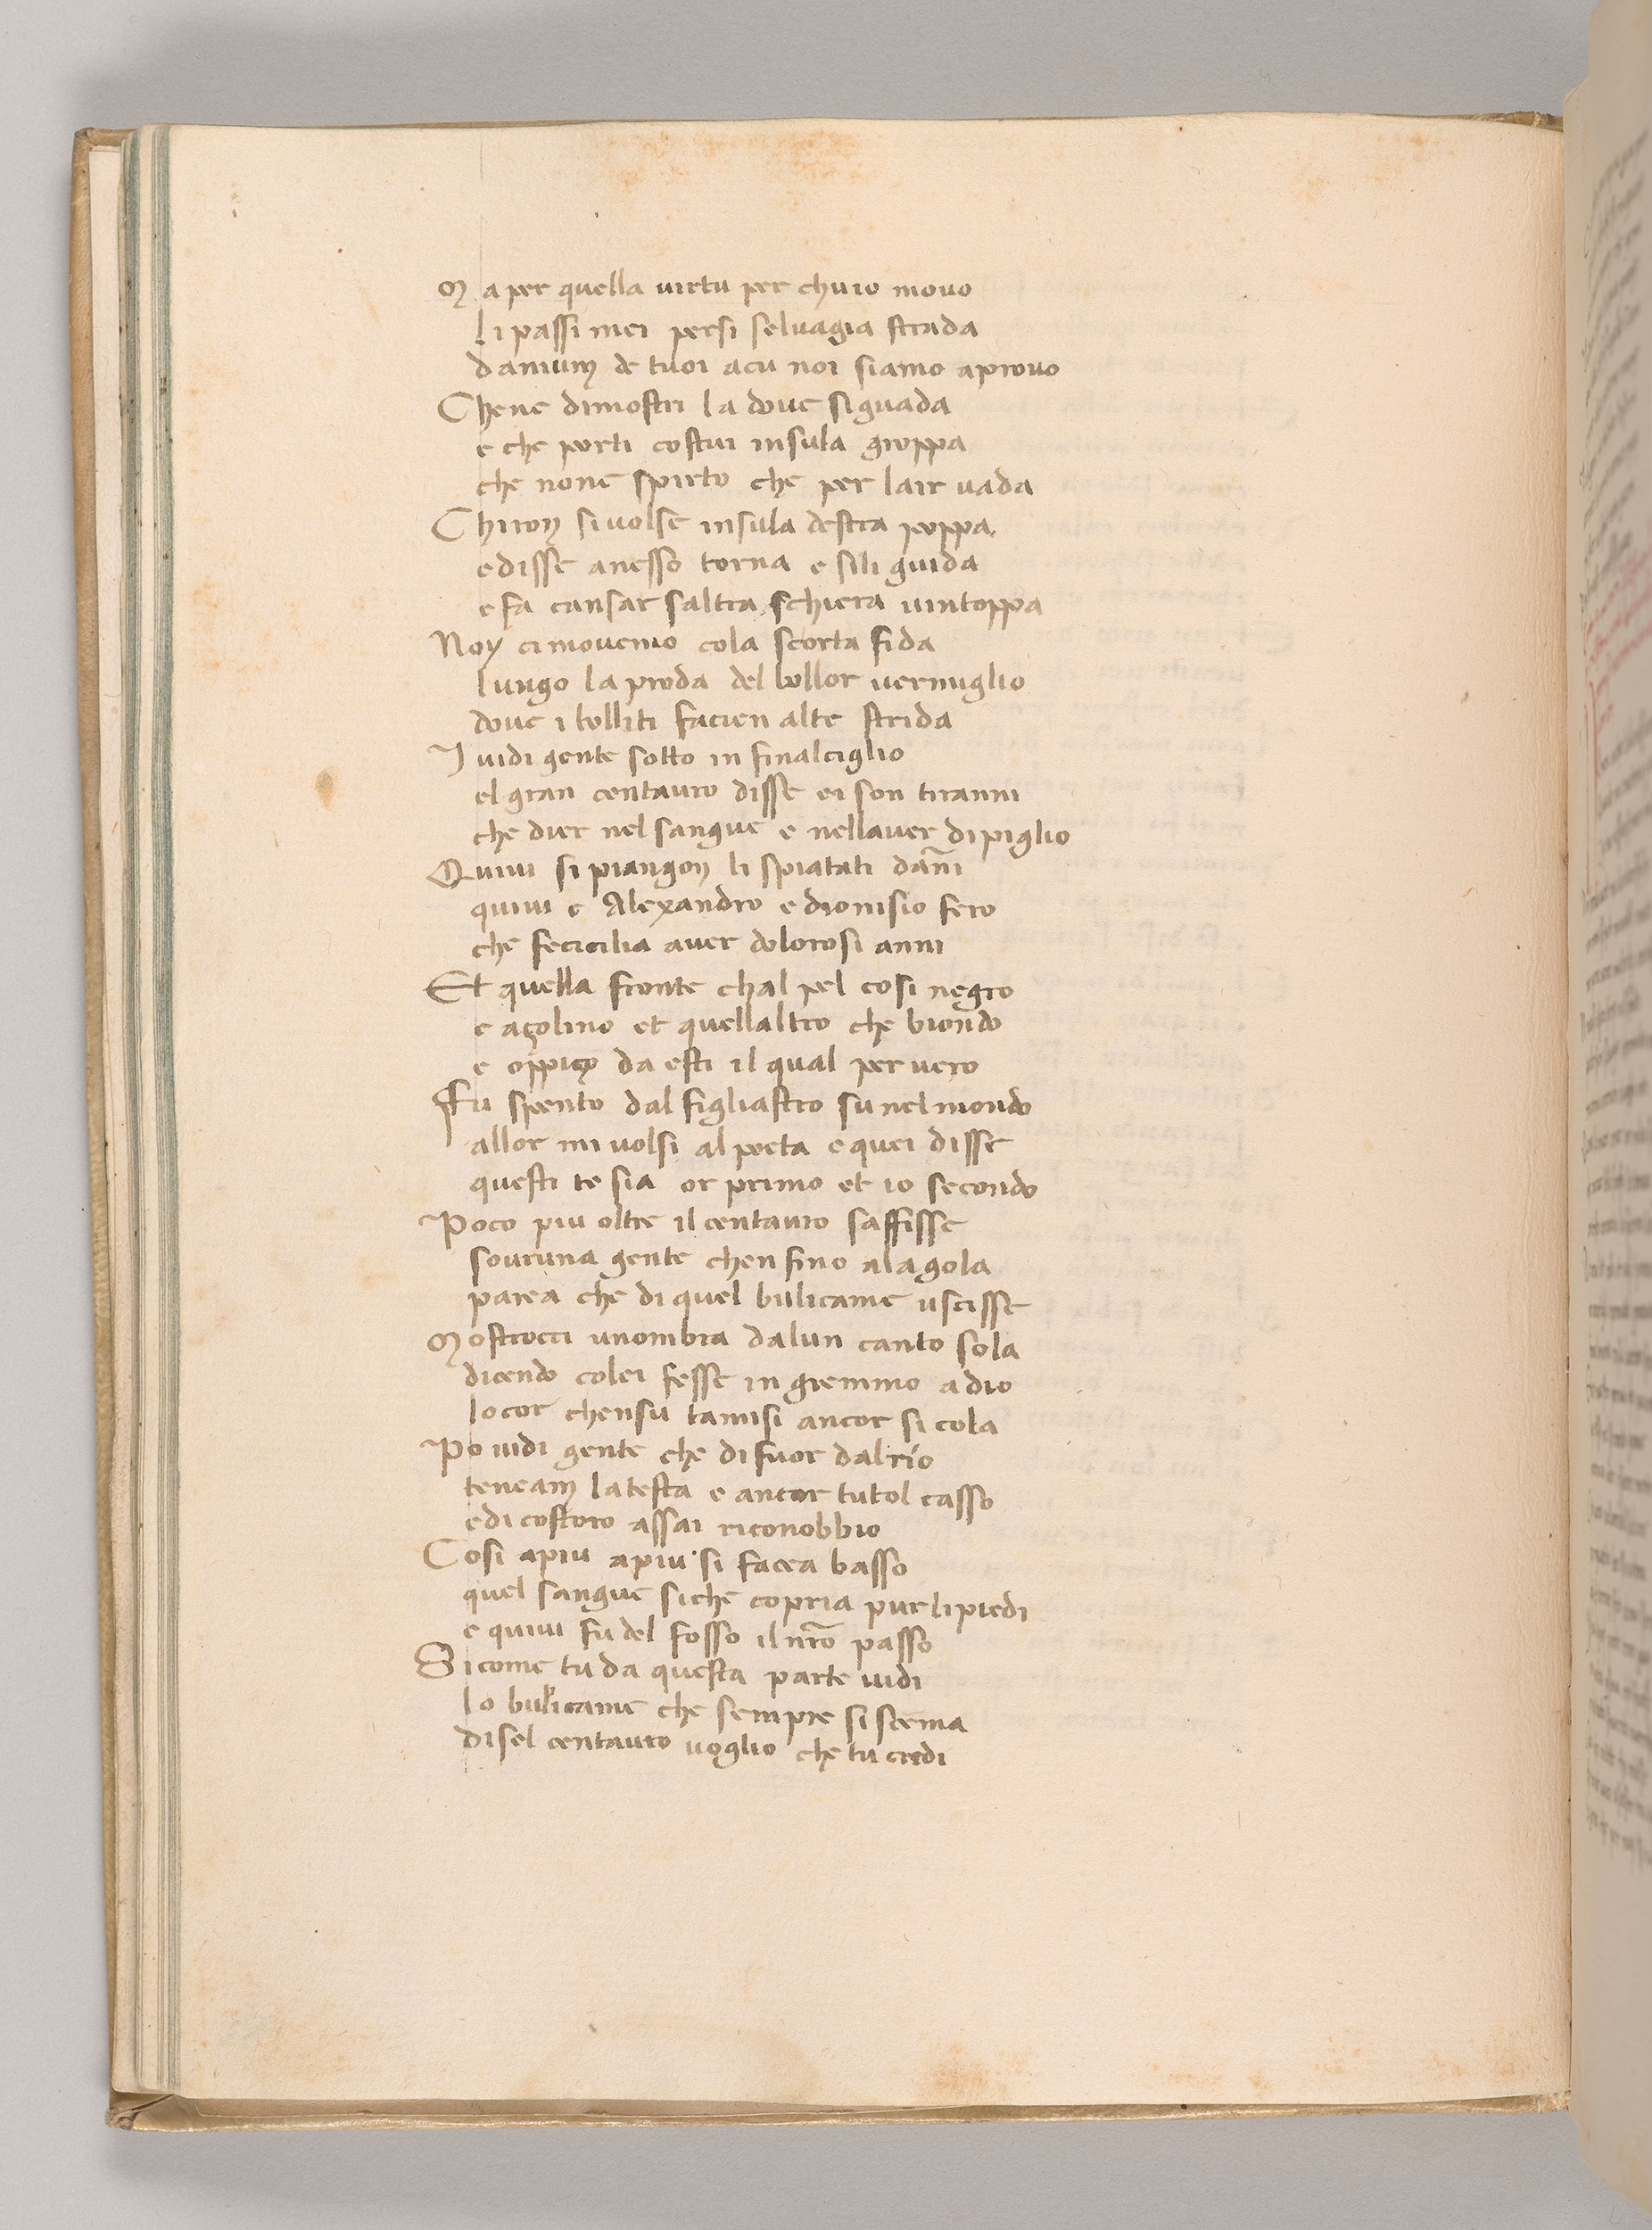 Ma per quella uirtu per chuio mouo
li passi mei persi seluagia strada
damum de tuoi acu noi siamo aprouo
Chene dimostri la doue si guada
e che porti costui insula groppa
che none spirto che per lair uada
Chiron siuolse insula destra poppa
edisse anesso torna e sili guida
e fa cansar saltra schiera uintoppa
Noy cimouemo cola scorta fida
lungo la proda del bollor uermiglio
doue i bolliti facien alte strida
I uidi gente sotto in finalciglio
el gran centauro disse ei son tiranni
che dier nel sangue e nellauer dipiglio
Quiui si piangon li spiatati dam̅i
quiui e Alexandro e dionisio fero
che fecicilia auer dolorosi anni
Et quella fronte chal pel cosi negro
e açolino et quellaltro che biondo
e oppiço da esti il qual per uero
Fu spento dal figliastro su nel mondo
allor mi uolsi al poeta e quei disse
questi te sia or primo et io secondo
Poco piu oltre il centauro saffisse
souruna gente chen fino alagola
parea che di quel bulicame uscisse
Mostrocci unombra dalun canto sola
dicendo colei fesse in gremmo adio
locor chensu tamisi ancor si cola
Po uidi gente che difuor dalrio
teneam latesta e ancor tutol casso
edi costoro assai riconobbio
Cosi apiu apiu si facea basso
quel sangue siche copria pur lipiedi
e quiui fu del fosso il nr̅o passo
Sicome tu da questa parte uidi
lo bulicame che sempre si scema
disel centauro uoglio che tu credi